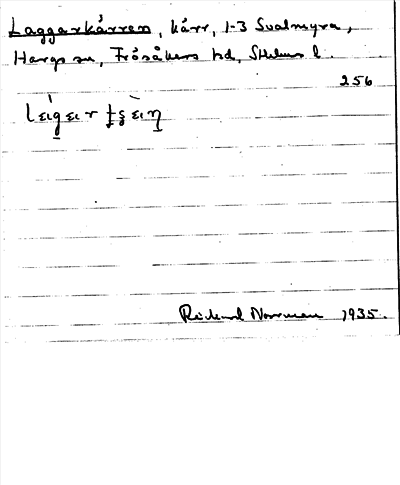 Laggarkärren, kärr, 1-3 Svalmyra,
Hargs sn, Frösåkers hd, Sthlms l.
256
Richard Norrman 1935.